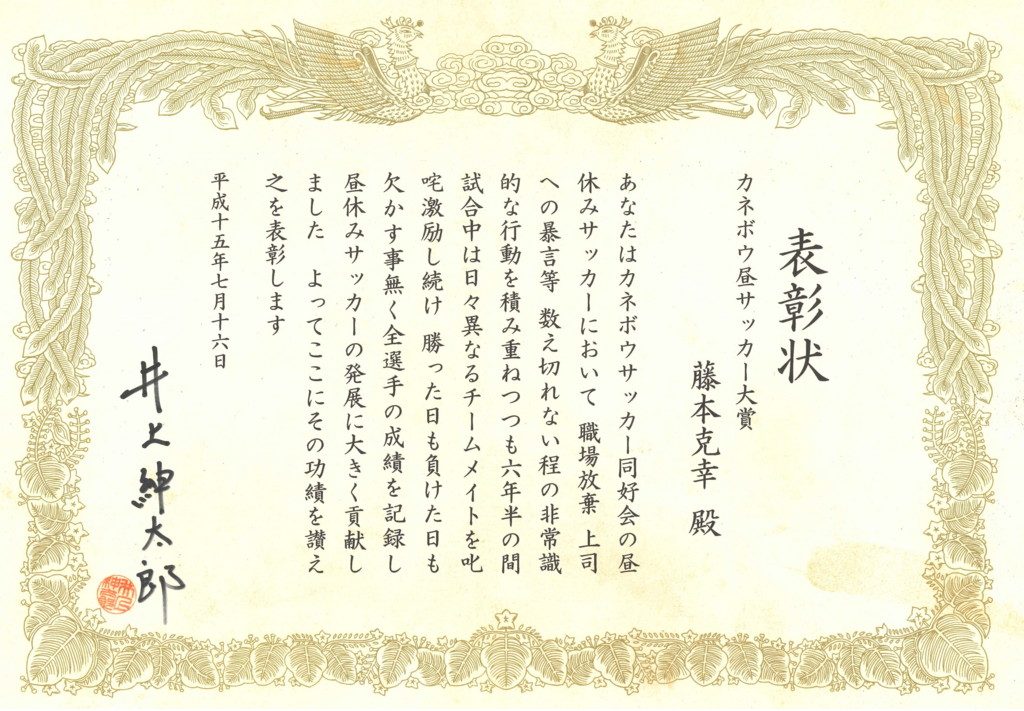 表彰状
カネボウ昼サッカー大賞
藤本克幸 殿
あなたはカネボウサッカー同好会の昼
休みサッカーにおいて 職場放棄 上司
への暴言等 数え切れない程の非常識
的な行動を積み重ねつつも六年半の間
試合中は日々異なるチームメイトを叱
咤激励し続け 勝った日も負けた日も
欠かす事無く全選手の成績を記録し
昼休みサッカーの発展に大きく貢献し
ました よってここにその功績を讃え
之を表彰します
平成十五年七月十六日
井上紳太郎